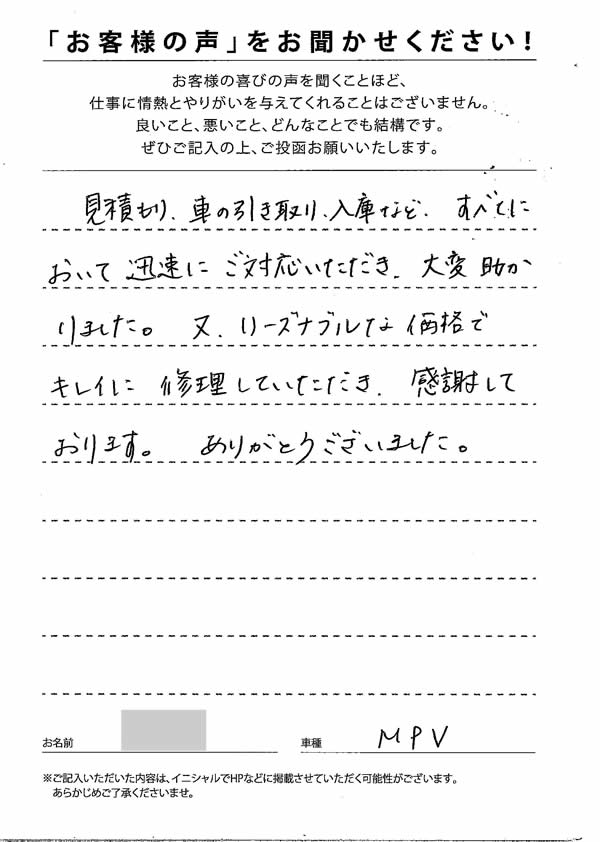 「お客様の声」をお聞かせください！
お客様の喜びの声を聞くことほど、
仕事に情熱とやりがいを与えてくれることはございません。
良いこと、悪いこと、どんなことでも結構です。
ぜひご記入の上、ご投函お願いいたします。
見積もり、車の引き取り、入庫など、すべてに
おいて迅速にご対応いただき、大変助か
りました。又、リーズナブルな価格で
キレイに修理していただき、感謝して
おります。ありがとうございました。
お名前
車種 MPV
※ご記入いただいた内容は、イニシャルでHPなどに掲載させていただく可能性がございます。
あらかじめご了承くださいませ。